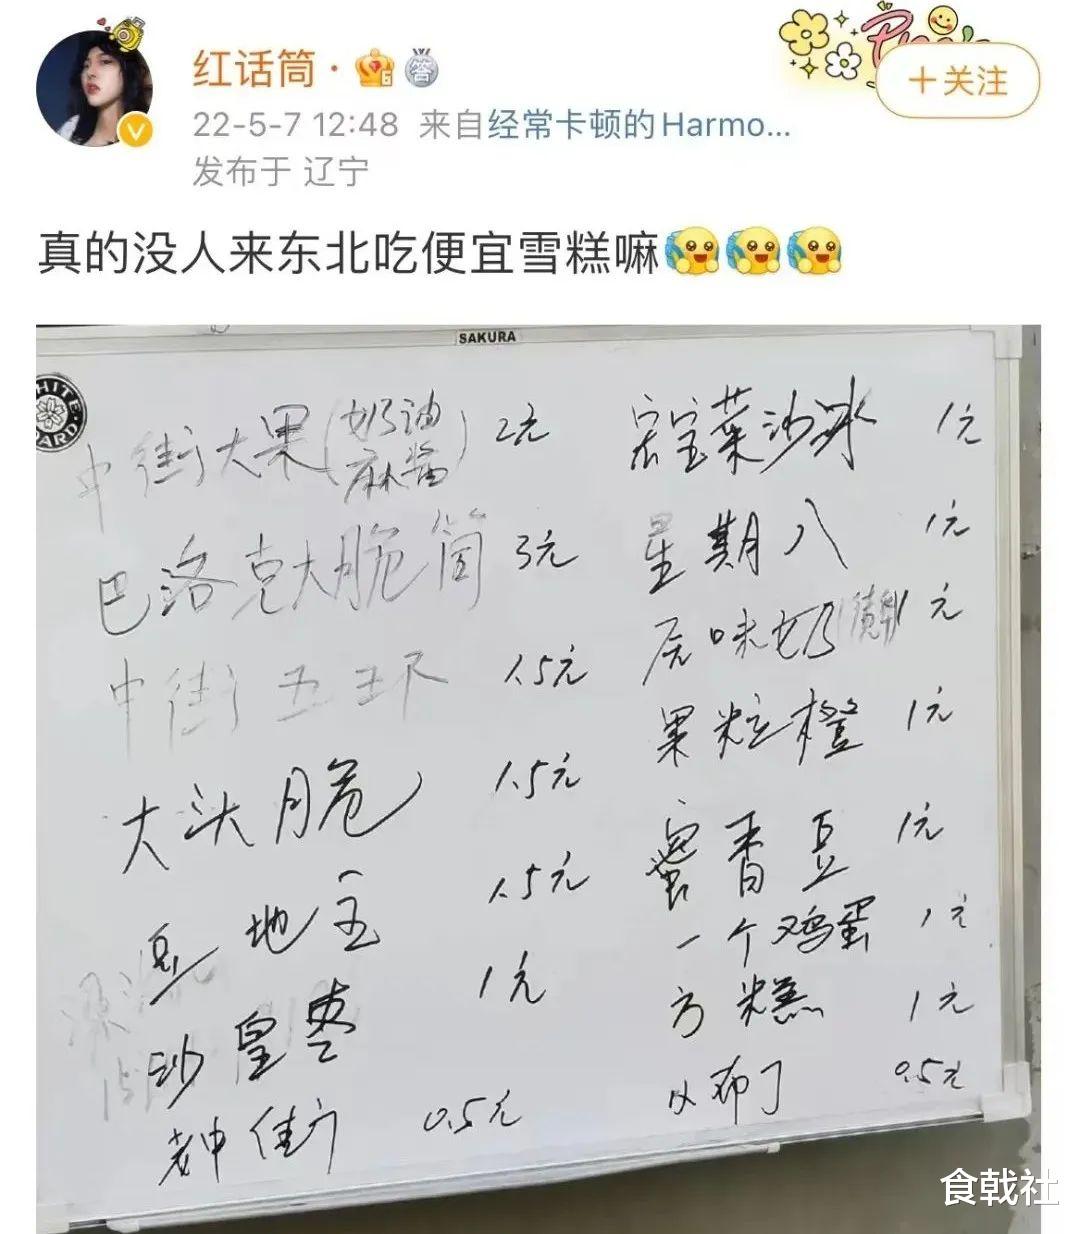 红话筒
+关注
22-5-7 12:48 来自经常卡顿的Harmo...
发布于 辽宁
真的没人来东北吃便宜雪糕嘛
SAKURA
中街大果(奶油 麻酱) 2元
巴洛克大脆筒 3元
中街五五环 1.5元
大头脆 1.5元
豆地主 1.5元
沙皇枣 1元
老中街 0.5元
菠菜沙冰 1元
星期八 1元
原味奶 1元
果粒橙 1元
蜜香豆 1元
一个鸡蛋 1元
方糕 1元
小布丁 0.5元
食戟社